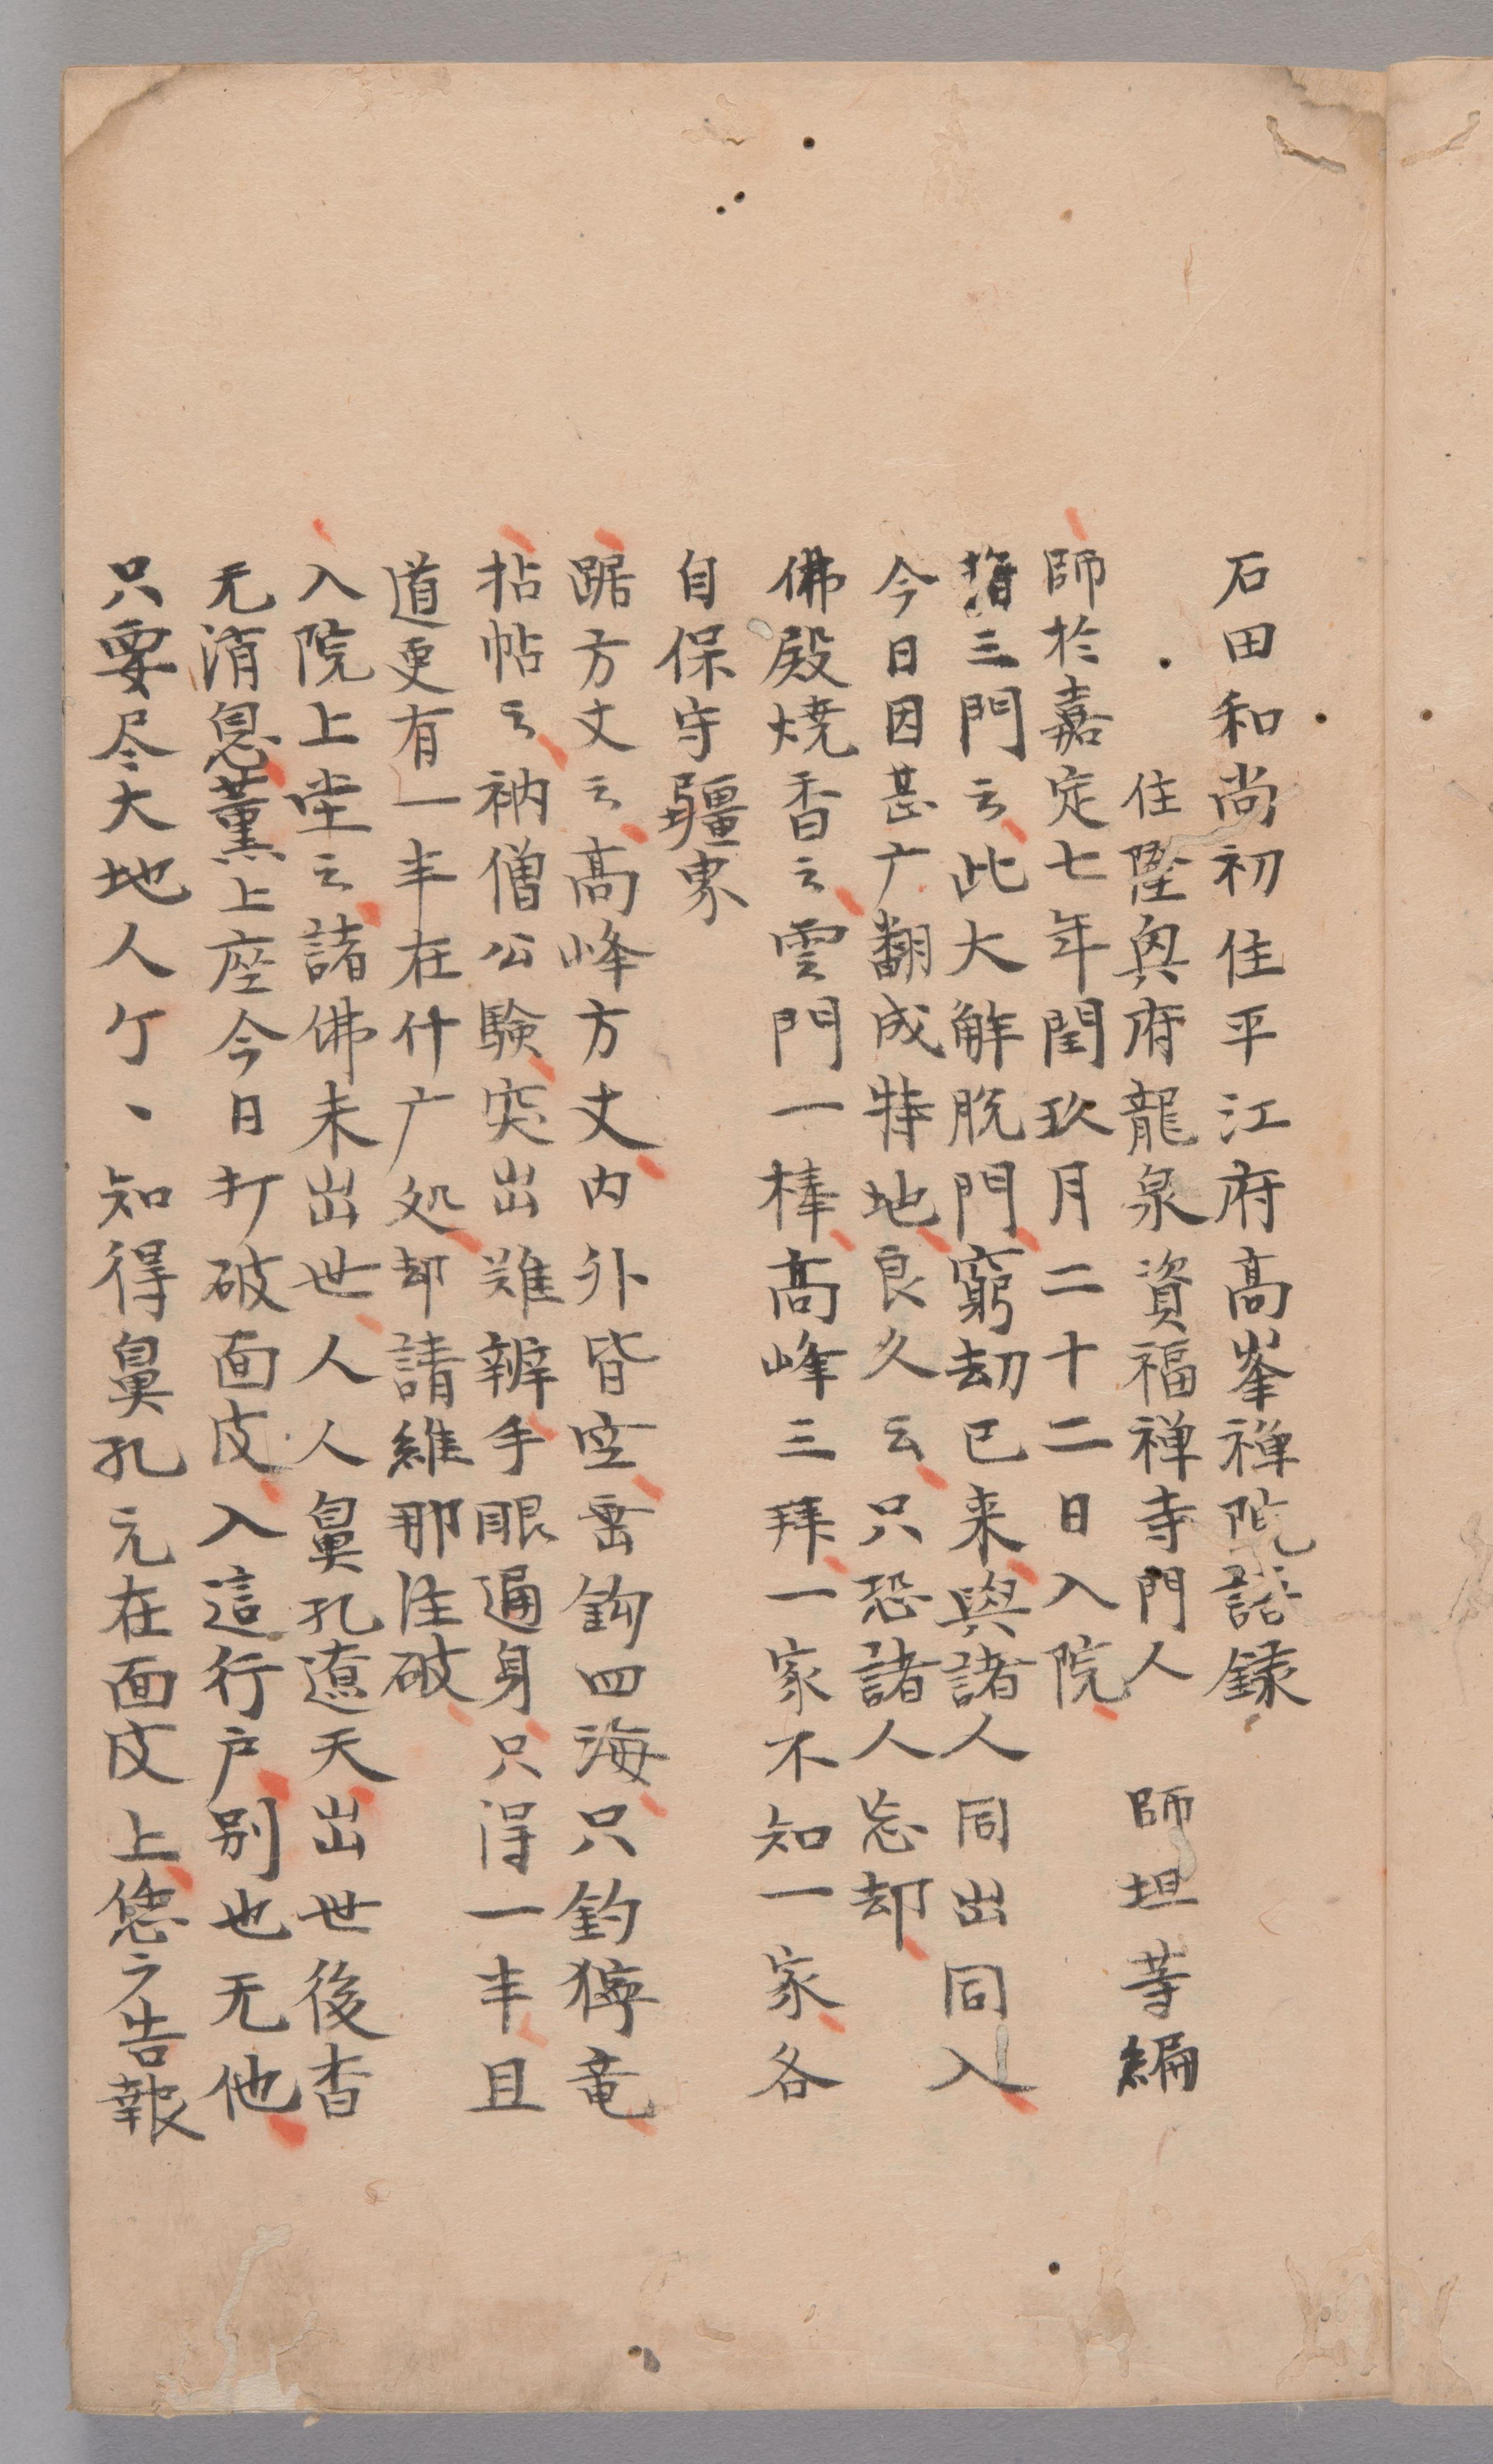 石田和尚初住平江府高峯禅院語録
住隆興府龍泉資福禅寺門人　師坦等編
師於嘉定七年閏玖月二十二日入院
指三門云此大解脱門窮劫已来與諸人同出同入
今日因甚广翻成特地良久云只恐諸人忘却
佛殿焼香云雲門一棒高峰三拜一家不知一家各
自保守疆界
踞方丈云高峰方丈内外皆空垂鈎四海只釣獰竜
拈帖云衲僧公験突出難辨手眼通身只得一半且
道更有一半在什广処却請維那注破
入院上堂云諸佛未出世人人鼻孔遼天出世後杳
无消息薫上座今日打破面皮入這行戸別也无他
只要尽大地人个、知得鼻孔元在面皮上憑广告報